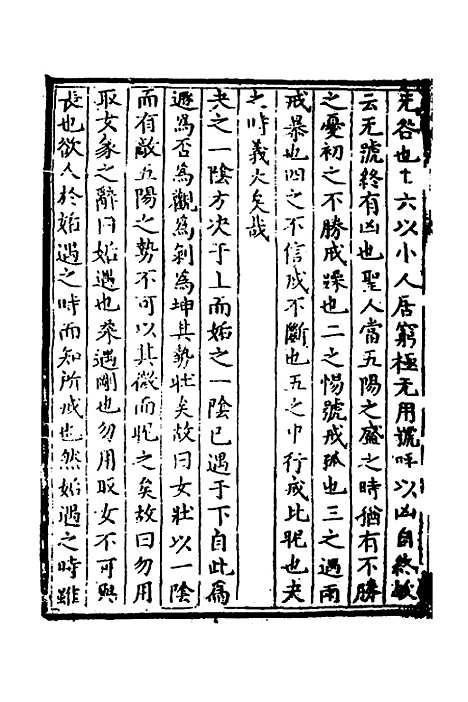 无咎也上六以小人居窮極无用號呼以凶自終故
云无號終有凶也聖人當五陽之盛之時猶有不勝
之憂初之不勝戒躁也二之惕號戒孤也三之遇雨
戒暴也四之不信戒不斷也五之中行戒比眤也夬
之時義大矣哉
夬之一陰方决于上而姤之一陰已遇于下自此為
遯為否為觀為剝為坤其勢壯矣故曰女壯以一陰
而有敵五陽之勢不可以其微而眤之矣故曰勿用
取女彖之辭曰姤遇也柔遇剛也勿用取女不可與
長也欲人於姤遇之時而知所戒也然姤遇之時雖